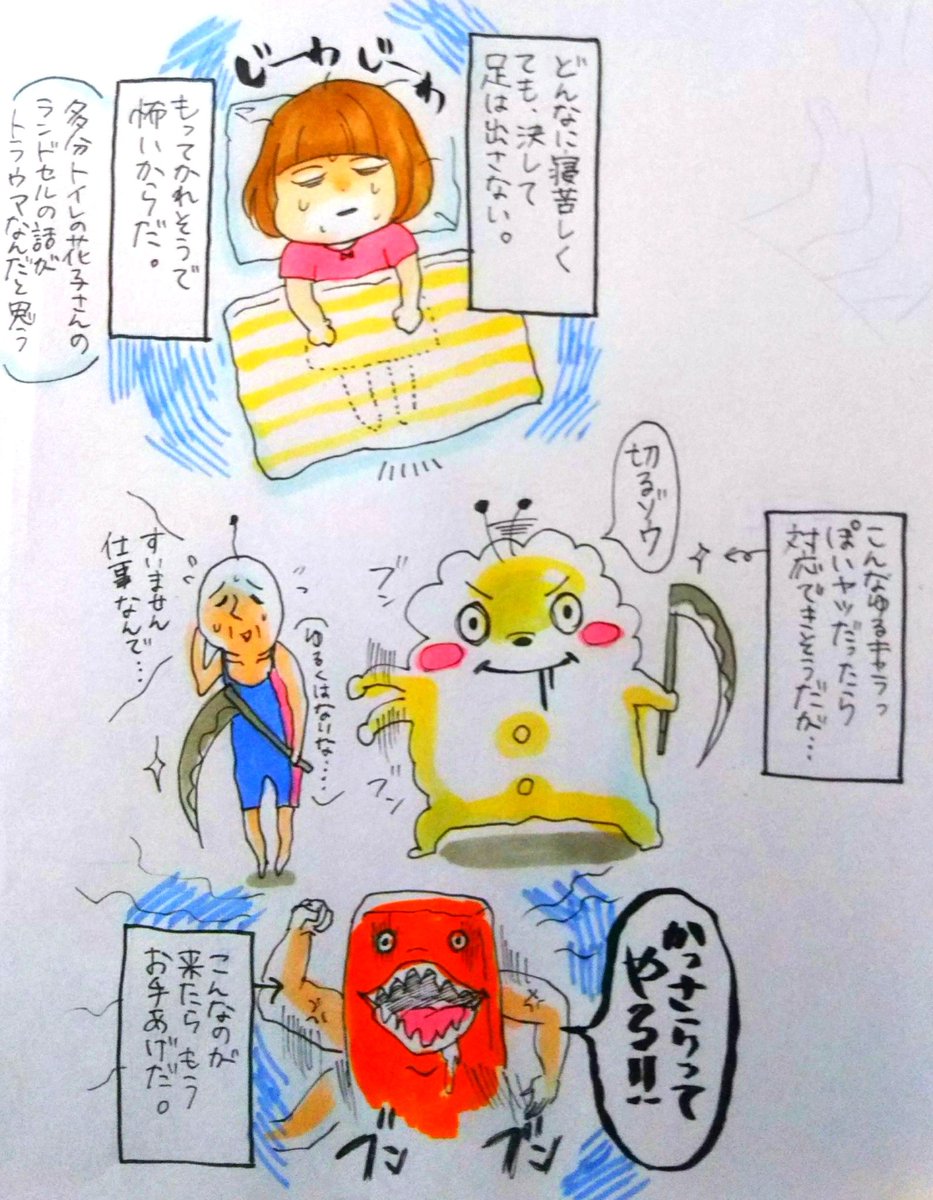 どんなに寝苦しく
ても、決して
足は出さない。
じーわじーわ
もってかれそうで
怖いからだ。
多分トイレの花子さんの
ランドセルの話が
トラウマなんだと思う
こんなゆるキャラっ
ぽいヤツだったら
対応できそうだが…
切るゾウ
ブン
ブン
(ゆるくはないな…)
すいません
仕事なんで…
かっさらって
やる!!
こんなのが
来たらもう
お手あげだ。
ブン
ブン